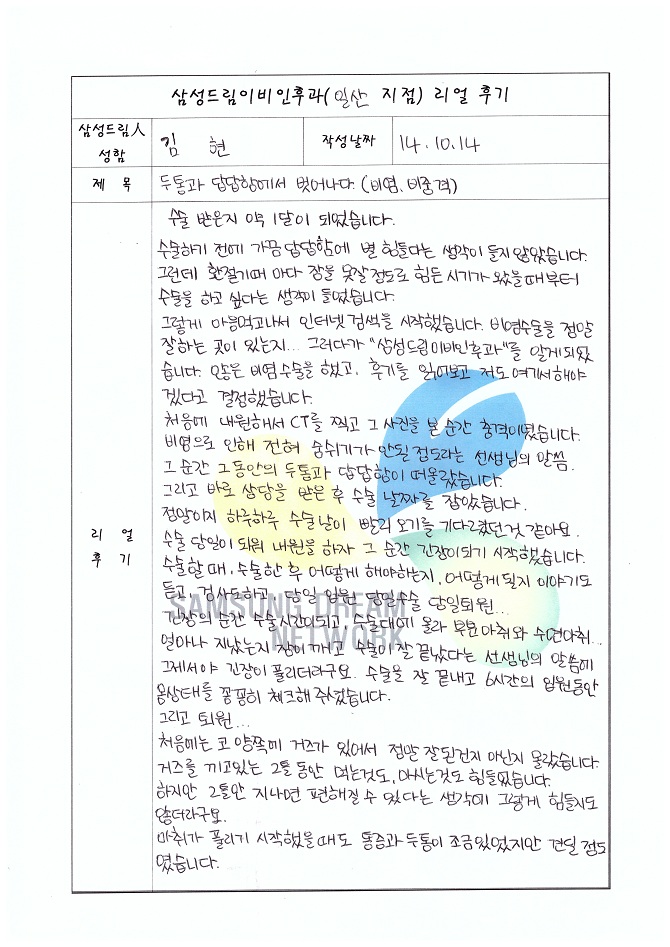 삼성드림이비인후과(일산 지점) 리얼 후기
삼성드림人 성함
김 현
작성날짜
14.10.14
제 목
두통과 답답함에서 벗어나다 (비염, 비중격)
리 얼 후 기
수술 받은지 약 1달이 되었습니다.
수술하기 전에 가끔 답답함에 별 힘들다는 생각이 들지 않았습니다.
그런데 환절기때 마다 잠을 못잘 정도로 힘든 시기가 왔을 때부터
수술을 하고 싶다는 생각이 들었습니다.
그렇게 마음먹고나서 인터넷 검색을 시작했습니다. 비염수술을 정말
잘하는 곳이 있는지... 그러다가 "삼성드림이비인후과"를 알게되었
습니다. 많은 비염수술을 했고, 후기를 읽어보고 저도 여기서 해야
겠다고 결정했습니다.
처음에 내원해서 CT를 찍고 그 사진을 본 순간 충격이였습니다.
비염으로 인해 전혀 숨쉬기가 안될 정도라는 선생님의 말씀.
그 순간 그동안의 두통과 답답함이 떠올랐습니다.
그리고 바로 상담을 받은 후 수술 날짜를 잡았습니다.
정말이지 하루하루 수술날이 빨리 오기를 기다렸던것 같아요.
수술 당일이 되워 내원을 하자 그 순간 긴장이되기 시작했습니다.
수술할 때, 수술한 후 어떻게 해야하는지, 어떻게 될지 이야기도
듣고, 검사도하고, 당일 입원 당일수술 당일퇴원...
긴장의 순간 수술시간이되고, 수술대에 올라 부분마취와 수면마취...
얼마나 지났는지 잠이 깨고 수술이 잘 끝났다는 선생님의 말씀에
그제서야 긴장이 풀리더라구요. 수술을 잘 끝내고 6시간의 입원동안
몸상태를 꼼꼼히 체크해 주셨습니다.
그리고 퇴원...
처음에는 코 양쪽에 거즈가 있어서 정말 잘된건지 아닌지 몰랐습니다.
거즈를 끼고있는 2틀 동안 먹는것도, 마시는것도 힘들었습니다.
하지만 2틀만 지나면 편해질 수 있다는 생각에 그렇게 힘들지도
않더라구요.
마취가 풀리기 시작했을 때도 통증과 두통이 조금있었지만 견딜 정도
였습니다.
SAMSUNG DREAM
NETWORK